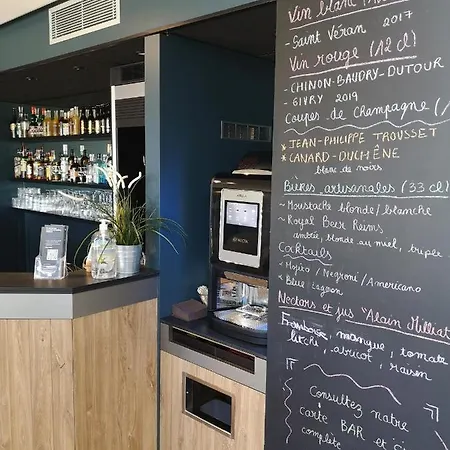 Vin blanc
- Saint Véran 2017
Vin rouge (12 cl)
- CHINON-BAUDRY-DUTOUR
- GIVRY 2019
Coupes de Champagne
* JEAN-PHILIPPE TROUSSET
* CANARD-DUCHÊNE
blanc de noirs
Bières artisanales (33 cl)
- Moustache blonde/blanche
- Royal Beer Reims
ambrée, blonde au miel, triple
Cocktails
- Mojito / Negroni / Americano
- Blue Lagoon
Nectars et jus "Alain Milliat
Framboise, mangue, tomate
litchi, abricot, raisin
Consultez notre
carte BAR et
complète